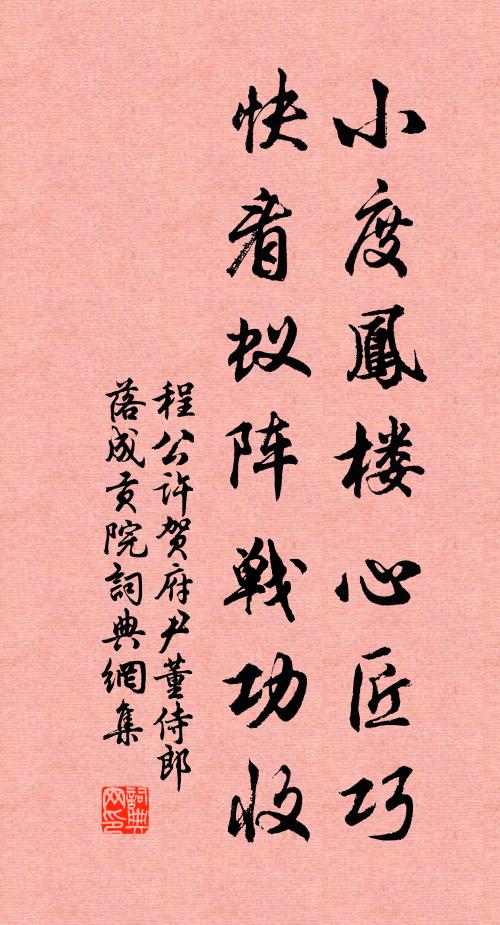 小度鳳楼心匠巧
快看蚁阵戦功收
程公许贺府尹董侍郎
落成贡院詞典網集
詞典網印